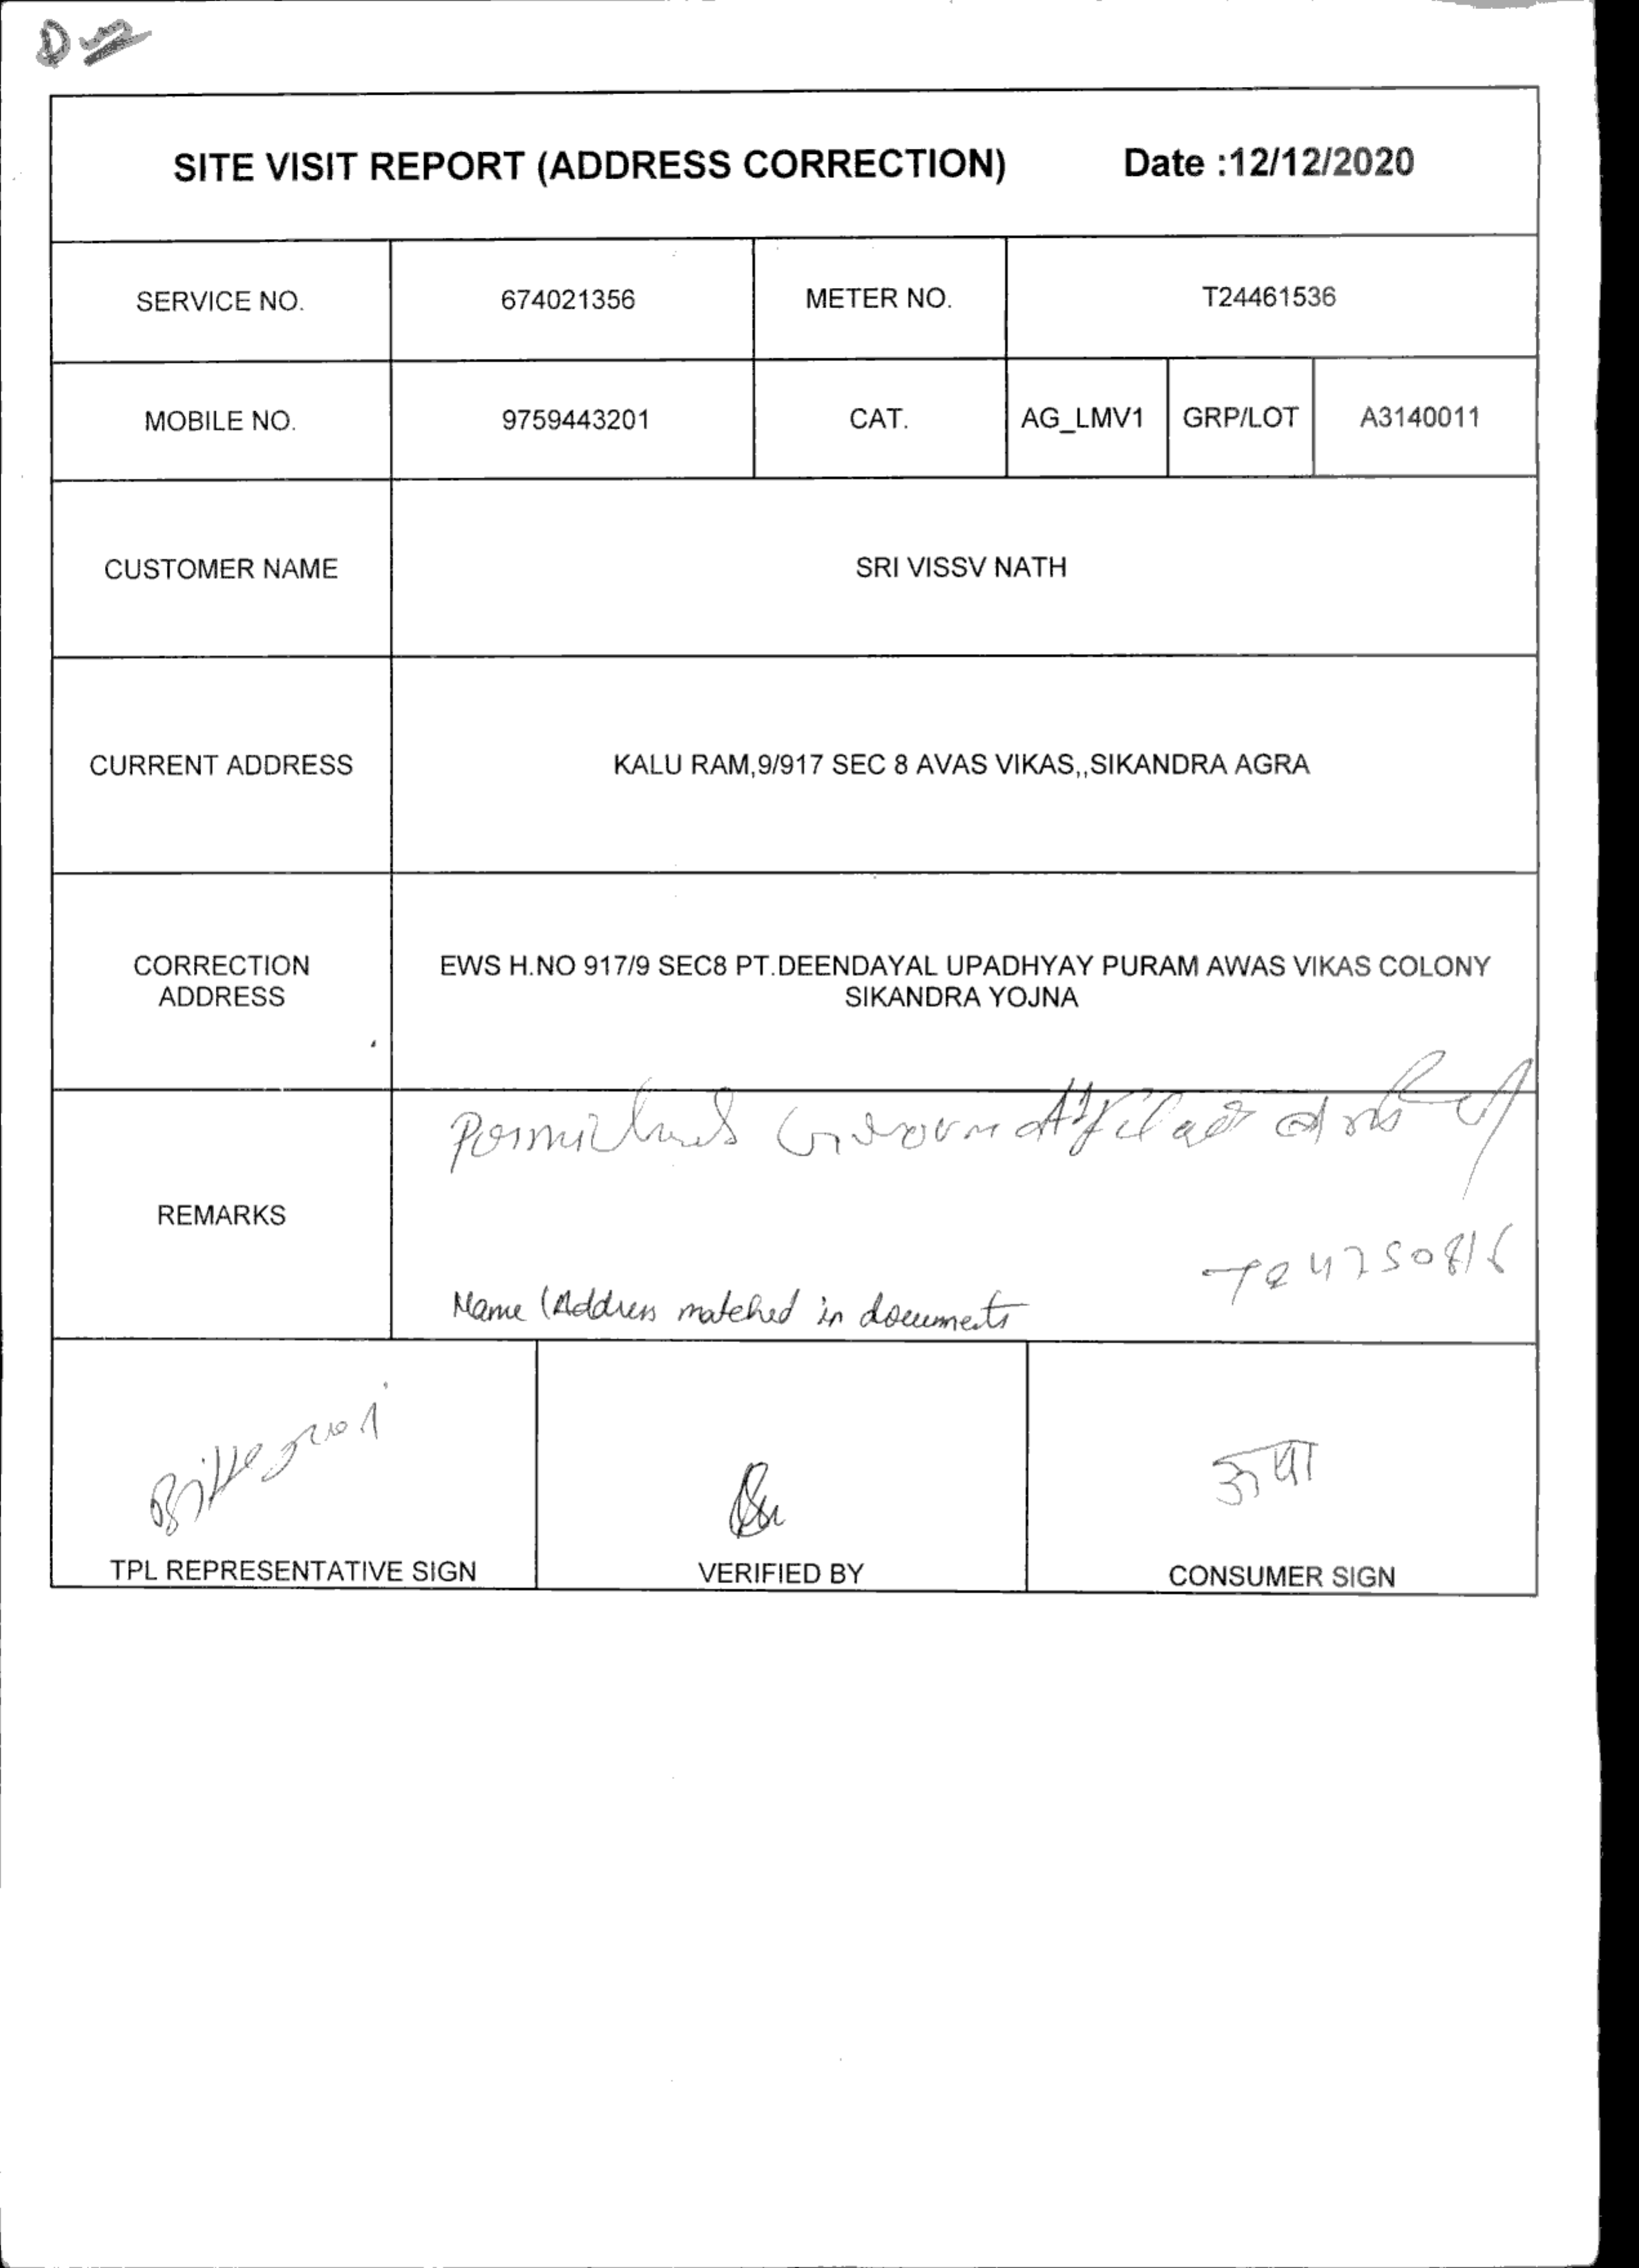 SITE VISIT REPORT (ADDRESS CORRECTION) Date :12/12/2020
SERVICE NO. 674021356 METER NO. T24461536
MOBILE NO. 9759443201 CAT. AG_LMV1 GRP/LOT A3140011
CUSTOMER NAME SRI VISSV NATH
CURRENT ADDRESS KALU RAM,9/917 SEC 8 AVAS VIKAS,,SIKANDRA AGRA
CORRECTION
ADDRESS
EWS H.NO 917/9 SEC8 PT.DEENDAYAL UPADHYAY PURAM AWAS VIKAS COLONY
SIKANDRA YOJNA
REMARKS
Name (Address matched in documents
TPL REPRESENTATIVE SIGN VERIFIED BY CONSUMER SIGN